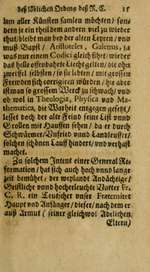 deß Löblichen Ordens deß R. C. 15
lem aller Künsten samlen möchten/ son-
dern je ein theil dem andern viel zu wieder
thut/ bleibt man bey der alten Leyren/ vnd
muß Bapst/ Aristoteles, Galenus, ja
was nur einem Codici gleich sihet/ wieder
das helle offenbahre Liecht gelten/ die ohn
zweiffel selbsten/ so sie lebten/ mit grossen
Frewden sich corrigirten/ hie aber
zu so grossem Werck zu schwach/ vnd
ob wol in Theologia, Physica vnd Ma-
thematica, die Warheit entgegen gesetzt/
lesset doch der alte Feind seine List vnd
Grollen mit Hauffen sehen/ da er durch
Schwürmer/ Vnfried vnnd Landleuffer/
solchen schönen Lauff hindert/ vnd verhast
macht.
Zu solchem Intent einer General Re-
formation/ hat sich auch hoch vnnd lange
zeit bemühet/ der weylandt Andächtige/
Geistliche vnnd hocherleuchte Vatter Fr.
C. R. ein Teutscher vnser Fraternitet
Haupt vnd Anfänger/ dieser/ nach dem er
auß Armut ( seiner gleichwol Adelichen
Eltern)